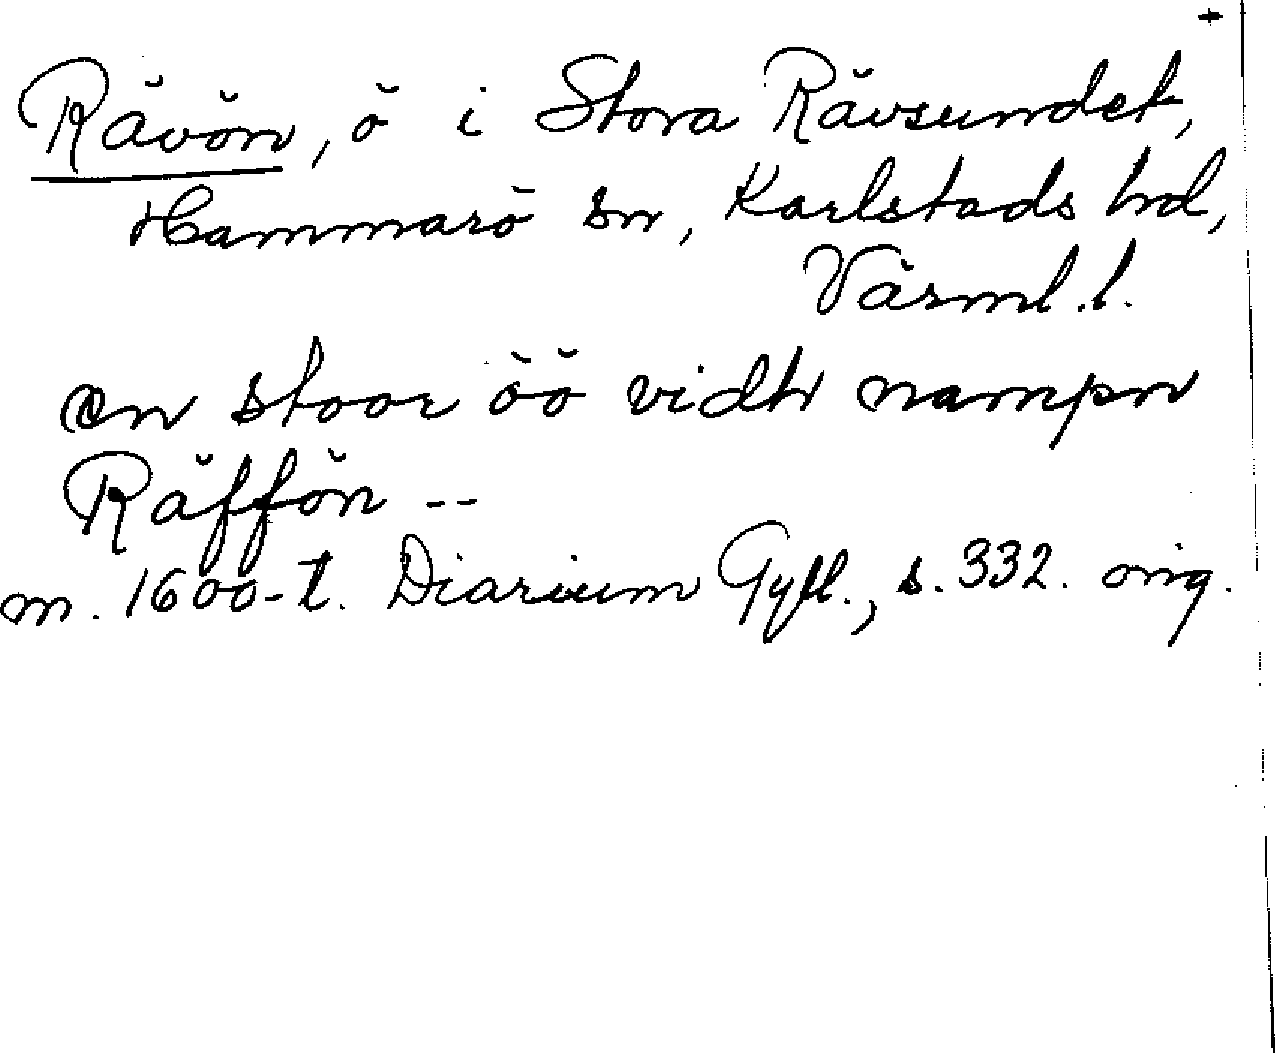 Rävön, ö i Stora Rävsundet,
Hammarö sn, Karlstads hd,
Värml. l.
en stoor öö vidh nampn
Räffön --
m. 1600-t. Diarium Gyll., s. 332. orig.